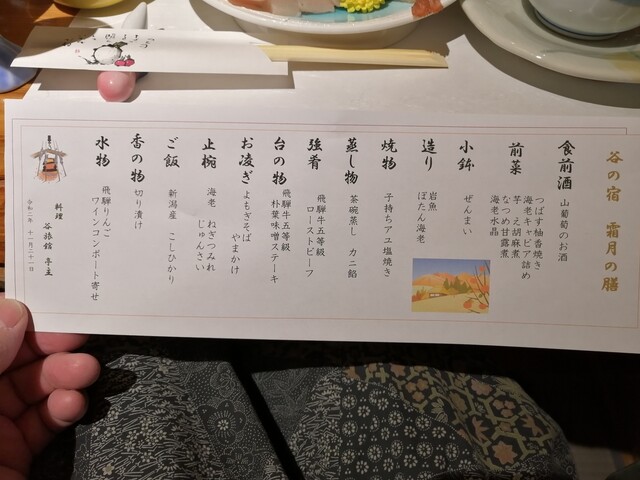 谷の宿　霜月の膳
食前酒
山葡萄のお酒
前菜
つぶす柚香焼き
海老キャビア詰め
芋 えご胡麻煮
なつめ甘露煮
海老水晶
小鉢
ぜんまい
造り
岩魚
ぼたん海老
焼物
子持ちアユ塩焼き
蒸し物
茶碗蒸し　カニ餡
強肴
飛騨牛五等級
ローストビーフ
台の物
飛騨牛五等級
朴葉味噌ステーキ
お凌ぎ
よもぎそば
やまかけ
止椀
海老　ねぎつみれ
じゅんさい
ご飯
新潟産　こしひかり
香の物
切り漬け
水物
飛騨りんご
ワインコンポート寄せ
料理
谷旅館 亭主
令和二年 十一月二十一日